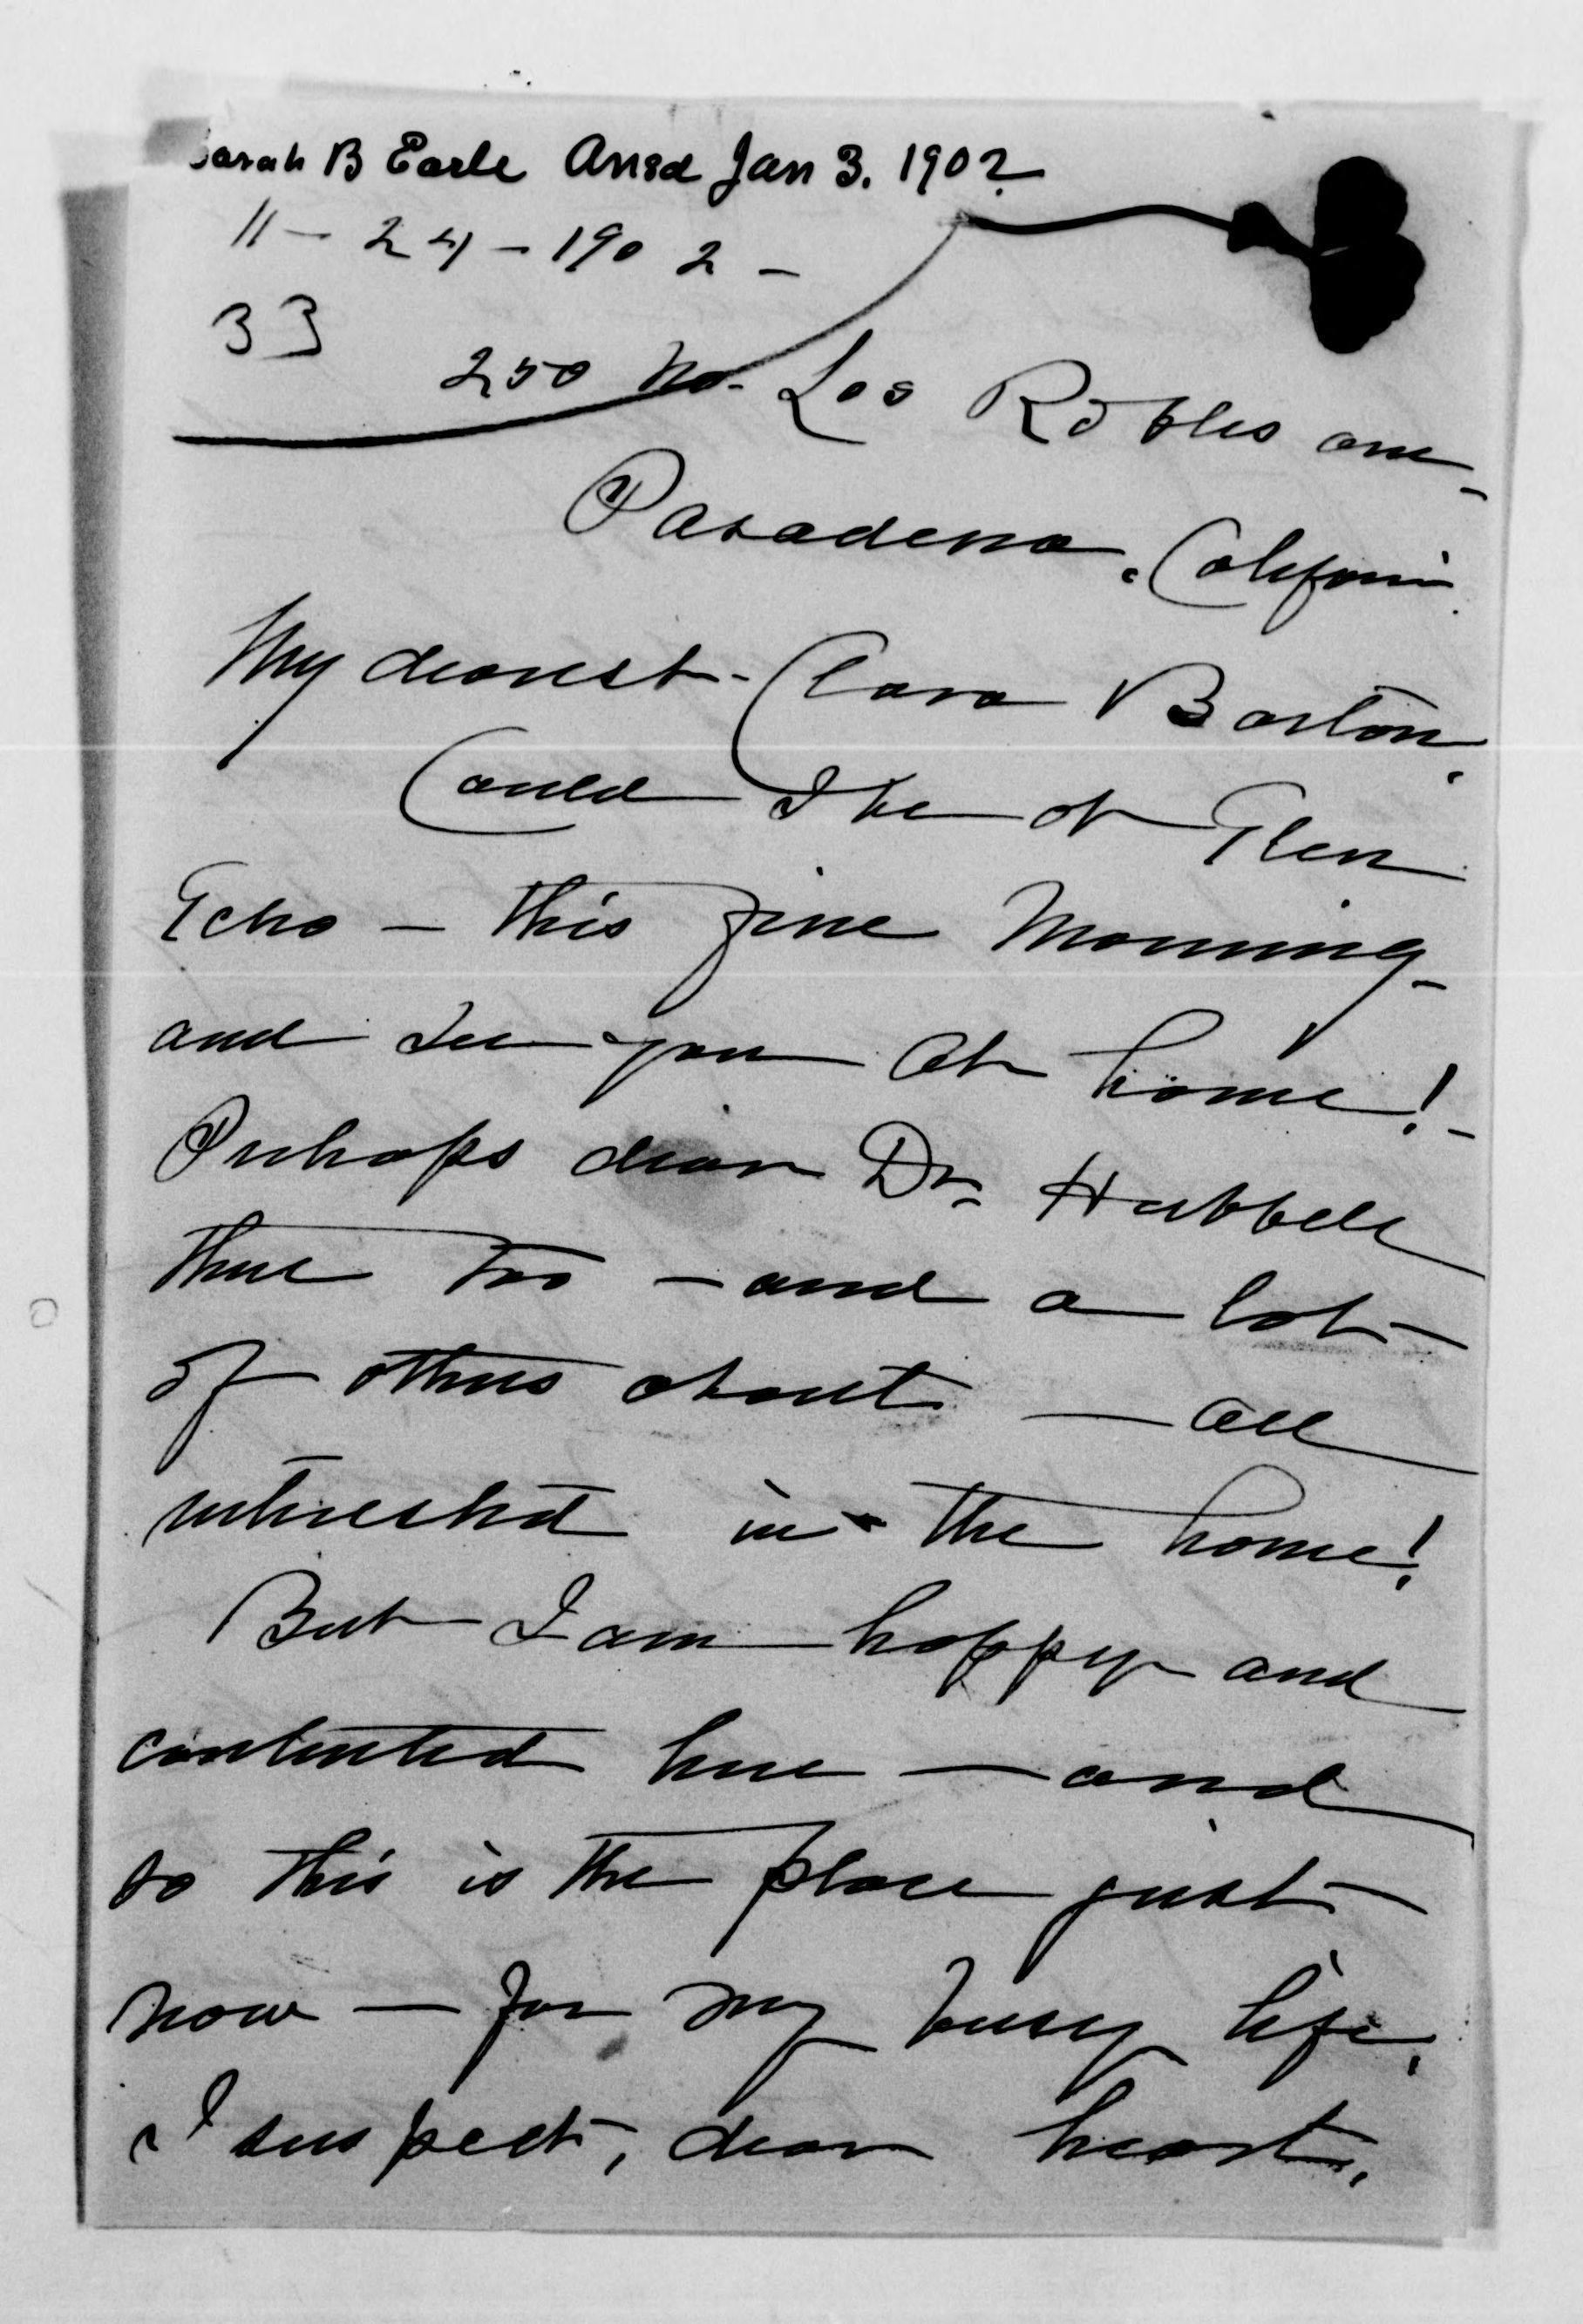 Sarah B Earle Ansd Jan 3. 1902
11 - 24 - 1902 -
33
250 No. Los Robles ave -
Pasadena. California.
My dearest Clara Barton.
Could I be at Glen
Echo - this fine morning -
and see you at home! -
Perhaps dear Dr. Hubbell
there too - and a lot -
of others about - all
interested in the home!
But I am happy and
contented here - and
so this is the place just -
now - for my busy life.
I suspect, dear heart,